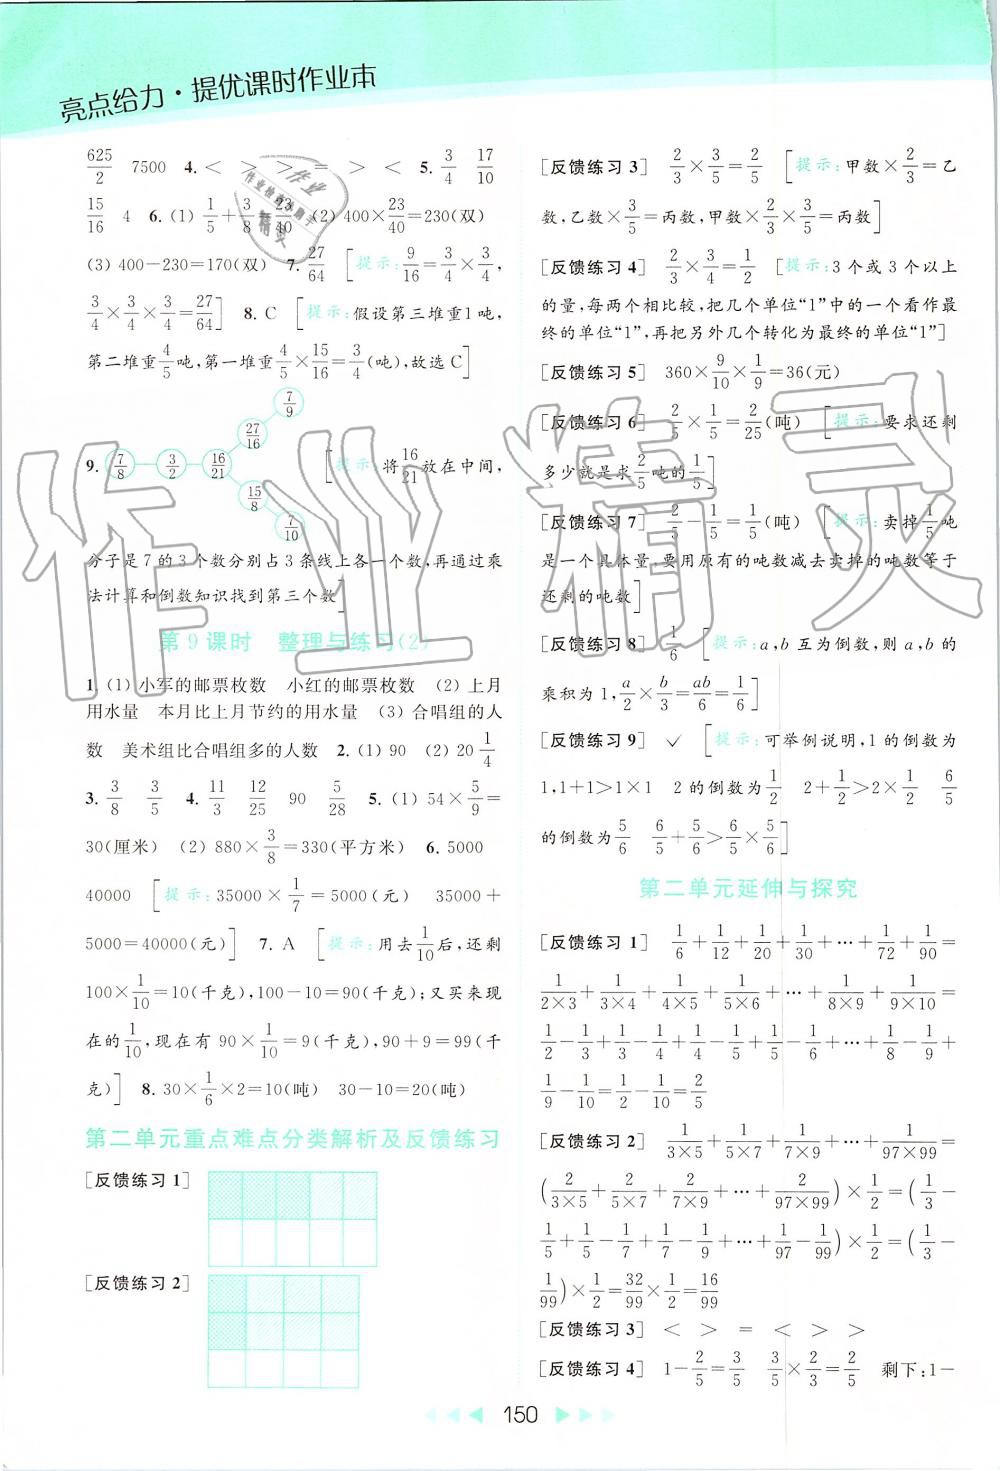 亮点给力·提优课时作业本
625/2 7500 4. < > > = > < 5. 3/4 17/10
15/16 4 6. (1) 1/5+3/8=23/40 (2) 400×23/40=230(双)
(3) 400-230=170(双) 7. 27/64 [提示:9/16=3/4×3/4,
3/4×3/4×3/4=27/64] 8. C [提示:假设第三堆重1吨,
第二堆重4/5吨,第一堆重4/5×15/16=3/4(吨),故选C]
7/9
27/16
9. 7/8 3/2 16/21 [提示:将16/21放在中间,
15/8
7/10
分子是7的3个数分别占3条线上各一个数,再通过乘
法计算和倒数知识找到第三个数]
第9课时 整理与练习(2)
1. (1) 小军的邮票枚数 小红的邮票枚数 (2) 上月
用水量 本月比上月节约的用水量 (3) 合唱组的人
数 美术组比合唱组多的人数 2. (1) 90 (2) 20 1/4
3. 3/8 3/5 4. 11/3 12/25 90 5/28 5. (1) 54×5/9=
30(厘米) (2) 880×3/8=330(平方米) 6. 5000
40000 [提示:35000×1/7=5000(元) 35000+
5000=40000(元)] 7. A [提示:用去1/10后,还剩
100×1/10=10(千克),100-10=90(千克);又买来现
在的1/10,现在有90×1/10=9(千克),90+9=99(千
克)] 8. 30×1/6×2=10(吨) 30-10=20(吨)
第二单元重点难点分类解析及反馈练习
[反馈练习1]
[反馈练习2]
[反馈练习3] 2/3×3/5=2/5 [提示:甲数×2/3=乙
数,乙数×3/5=丙数,甲数×2/3×3/5=丙数]
[反馈练习4] 2/3×3/4=1/2 [提示:3个或3个以上
的量,每两个相比较,把几个单位“1”中的一个看作最
终的单位“1”,再把另外几个转化为最终的单位“1”]
[反馈练习5] 360×9/10×1/9=36(元)
[反馈练习6] 2/5×1/5=2/25(吨) [提示:要求还剩
多少就是求2/5吨的1/5]
[反馈练习7] 2/5-1/5=1/5(吨) [提示:卖掉1/5吨
是一个具体量,要用原有的吨数减去卖掉的吨数等于
还剩的吨数]
[反馈练习8] 1/6 [提示:a,b互为倒数,则a,b的
乘积为1,a/2×b/3=ab/6=1/6]
[反馈练习9] ✓ [提示:可举例说明,1的倒数为
1,1+1>1×1 2的倒数为1/2 2+1/2>2×1/2 6/5
的倒数为5/6 6/5+5/6>6/5×5/6]
第二单元延伸与探究
[反馈练习1] 1/6+1/12+1/20+1/30+…+1/72+1/90=
1/2×3+1/3×4+1/4×5+1/5×6+…+1/8×9+1/9×10=
1/2-1/3+1/3-1/4+1/4-1/5+1/5-1/6+…+1/8-1/9+
1/9-1/10=1/2-1/10=2/5
[反馈练习2] 1/3×5+1/5×7+1/7×9+…+1/97×99=
(2/3×5+2/5×7+2/7×9+…+2/97×99)×1/2=(1/3-
1/5+1/5-1/7+1/7-1/9+…+1/97-1/99)×1/2=(1/3-
1/99)×1/2=32/99×1/2=16/99
[反馈练习3] < > = < > >
[反馈练习4] 1-2/5=3/5 3/5×2/3=2/5 剩下:1-
150
作业精灵